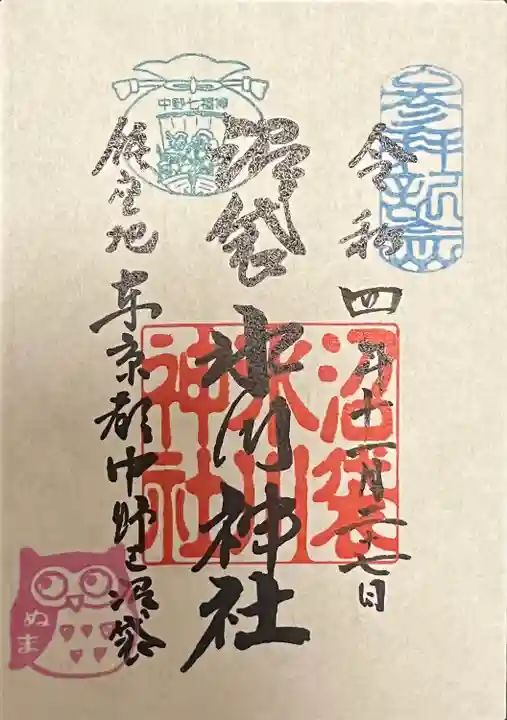 参拝記念
令和四年十一月二十七日
中野七福神
沼袋氷川神社
沼袋
氷川
神社
鎮座地 東京都中野区沼袋
ぬま